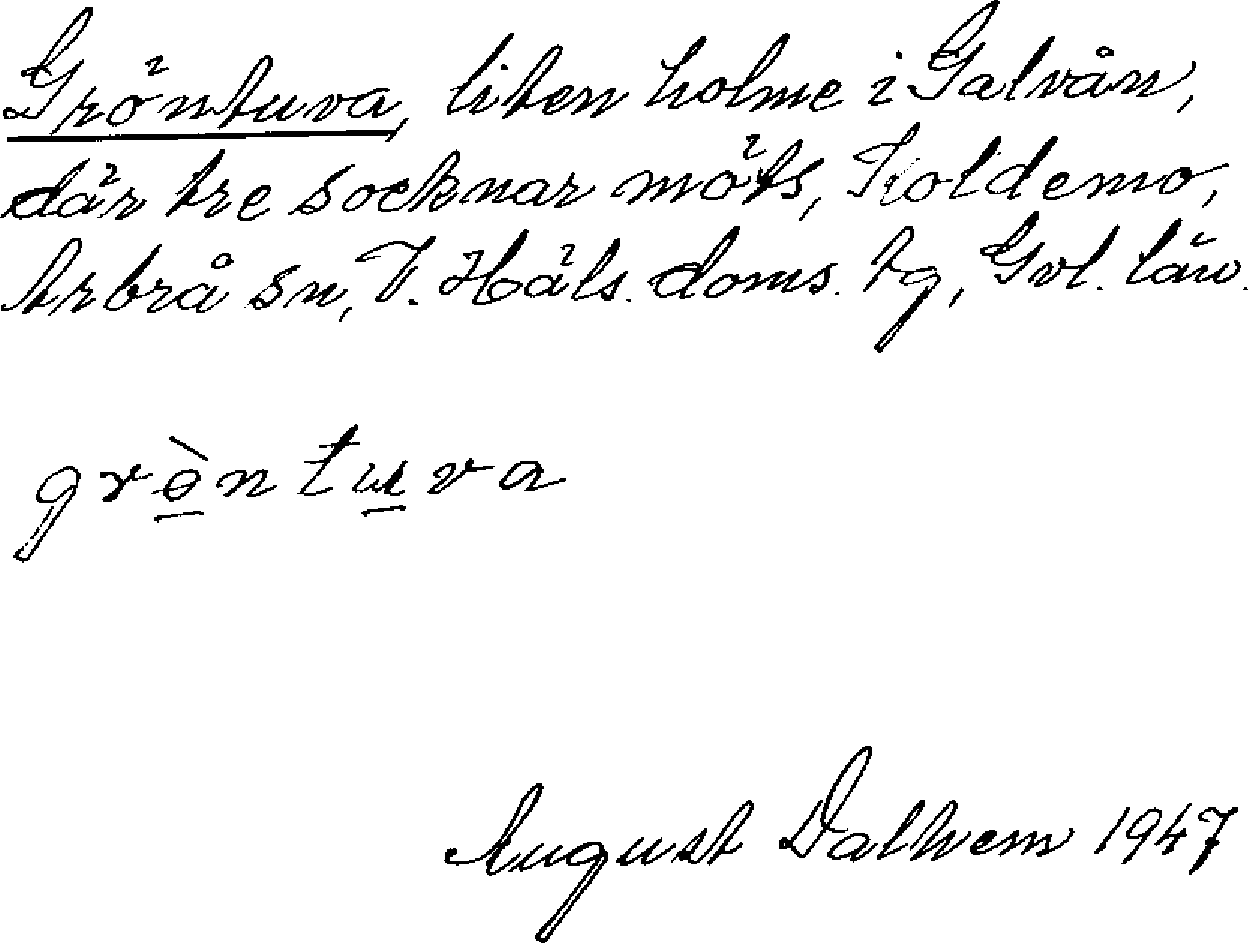 Gröntuva, liten holme i Galvån,
där tre socknar möts, Koldemo,
Arbrå sn, V. Häls. doms. tg, Gvl. län.
gròntuva
August Dalhem 1947